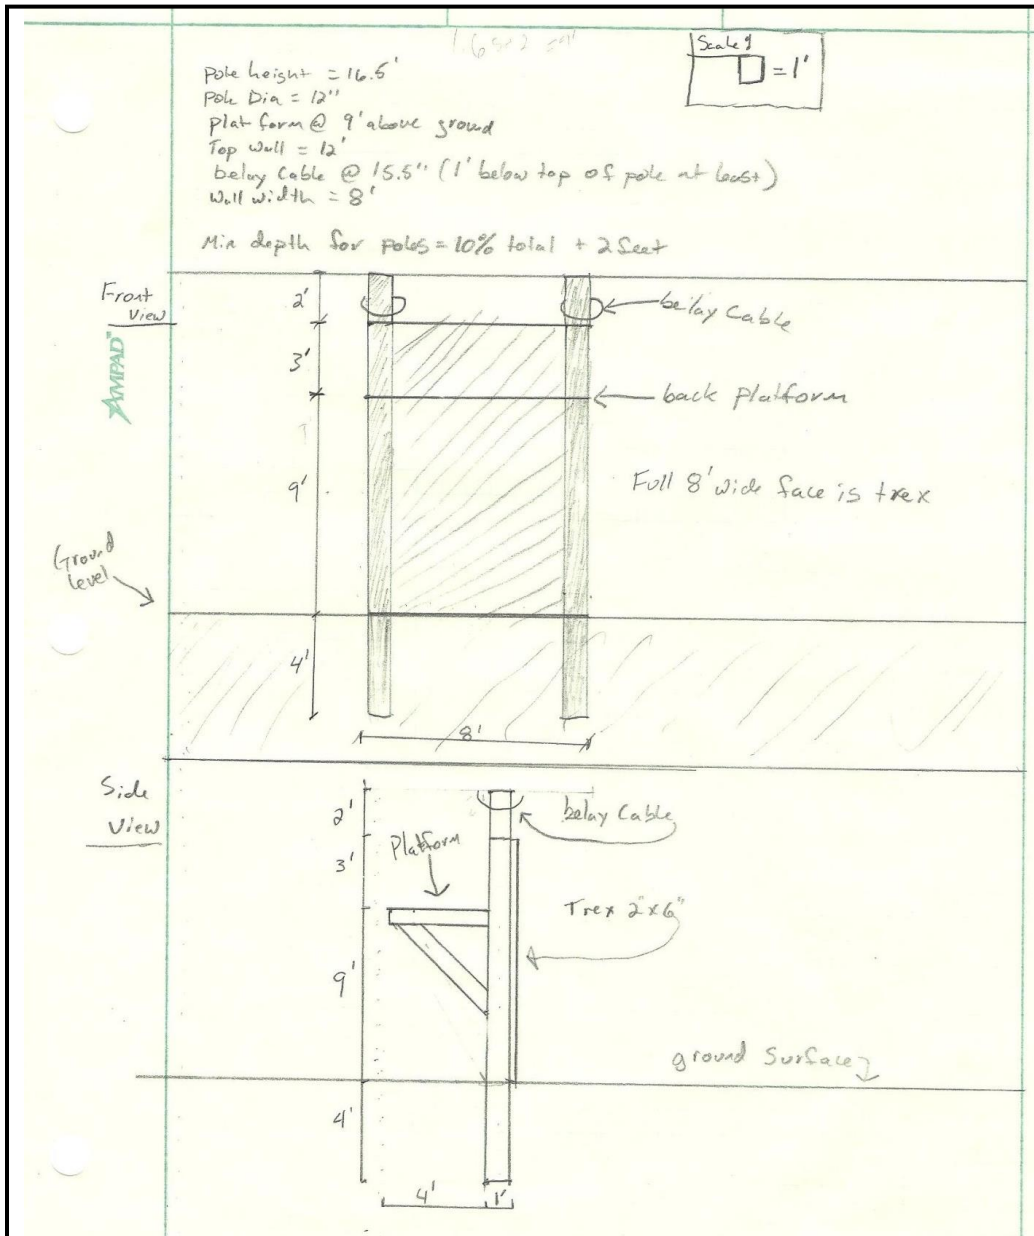 Scale
= 1'
Pole height = 16.5'
Pole Dia = 12"
platform @ 9' above ground
Top wall = 12'
belay Cable @ 15.5" (1' below top of pole at least)
Wall width = 8'
Min depth for poles = 10% total + 2 feet
Front
View
AMPAD™
2'
belay Cable
3'
back platform
9'
Full 8' wide face is trex
Ground
level
4'
8'
Side
View
2'
belay Cable
Platform
3'
Trex 2"x6"
9'
ground Surface
4'
4'
1'